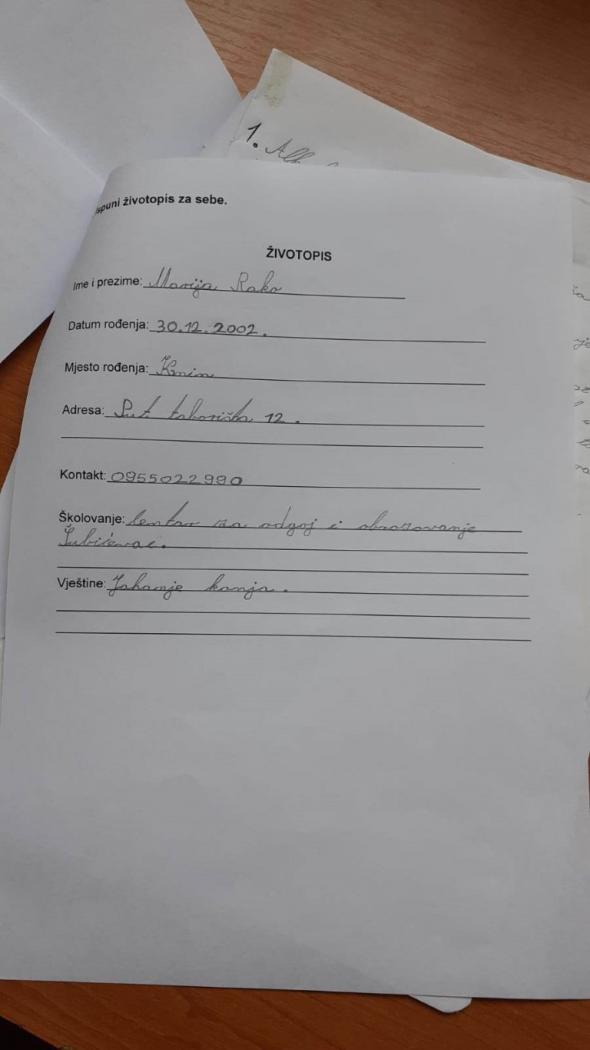 1. All
Ispuni životopis za sebe.
ŽIVOTOPIS
Ime i prezime: Marija Rako
Datum rođenja: 30.12.2002.
Mjesto rođenja: Knin
Adresa: Put taborišta 12.
Kontakt: 0955022990
Školovanje: Centar za odgoj i obrazovanje
Šubićevac.
Vještine: Jahanje konja.